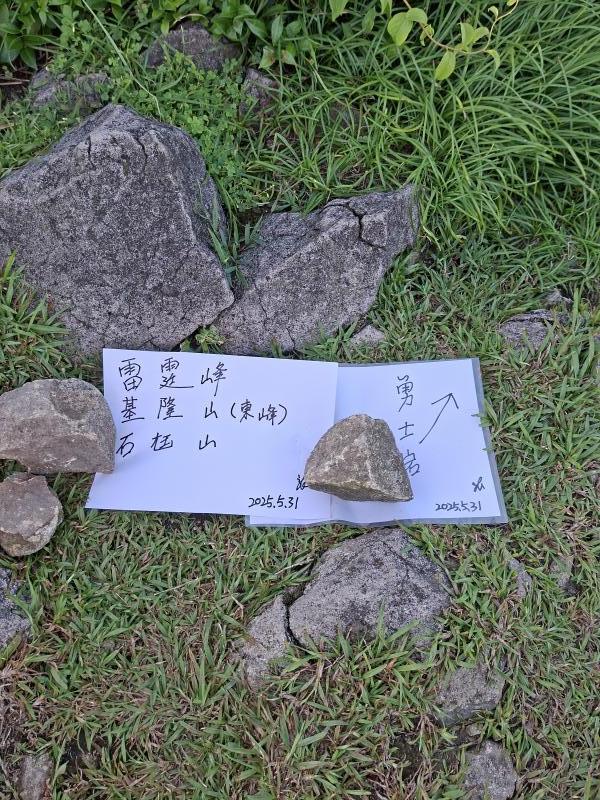 雷霆峰
基隆山(東峰)
石梯山
2025.5.31
勇士岩
↗
2025.5.31